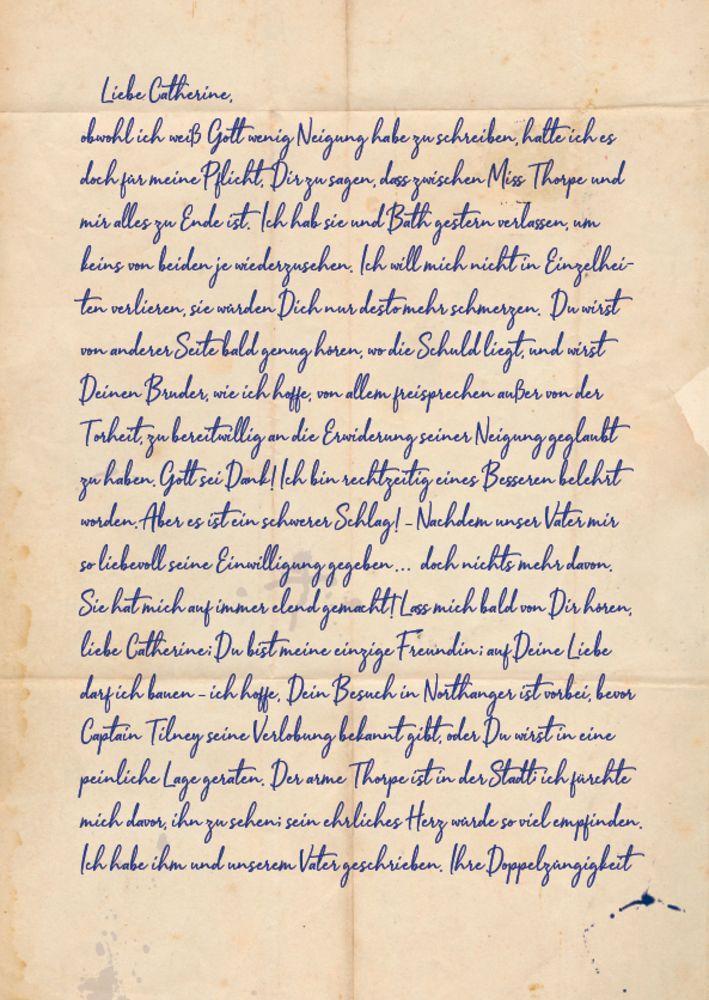 Liebe Catherine,
obwohl ich weiß Gott wenig Neigung habe zu schreiben, halte ich es
doch für meine Pflicht, Dir zu sagen, dass zwischen Miss Thorpe und
mir alles zu Ende ist. Ich hab sie und Bath gestern verlassen, um
keins von beiden je wiederzusehen. Ich will mich nicht in Einzelhei-
ten verlieren, sie würden Dich nur desto mehr schmerzen. Du wirst
von anderer Seite bald genug hören, wo die Schuld liegt, und wirst
Deinen Bruder, wie ich hoffe, von allem freisprechen außer von der
Torheit, zu bereitwillig an die Erwiderung seiner Neigung geglaubt
zu haben. Gott sei Dank! Ich bin rechtzeitig eines Besseren belehrt
worden. Aber es ist ein schwerer Schlag! – Nachdem unser Vater mir
so liebevoll seine Einwilligung gegeben ... doch nichts mehr davon.
Sie hat mich auf immer elend gemacht! Lass mich bald von Dir hören,
liebe Catherine; Du bist meine einzige Freundin; auf Deine Liebe
darf ich bauen – ich hoffe, Dein Besuch in Northanger ist vorbei, bevor
Captain Tilney seine Verlobung bekannt gibt, oder Du wirst in eine
peinliche Lage geraten. Der arme Thorpe ist in der Stadt; ich fürchte
mich davor, ihn zu sehen; sein ehrliches Herz würde so viel empfinden.
Ich habe ihm und unserem Vater geschrieben. Ihre Doppelzüngigkeit